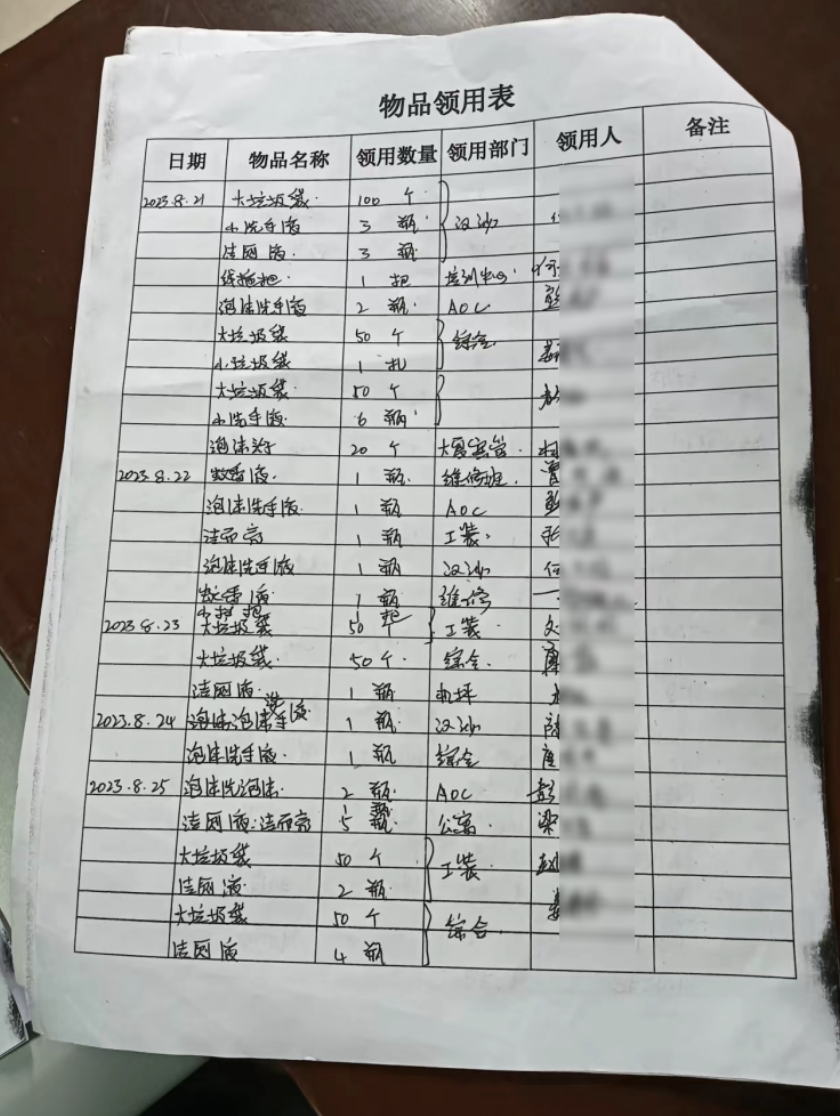 物品领用表
日期 物品名称 领用数量 领用部门 领用人 备注
2023.8.21 大垃圾袋 100 个
小洗手液 3 瓶 汉沙
洁厕液 3 瓶
线拖把 1 把 培训中心 何
泡沫洗手液 2 瓶 AOC 彭
大垃圾袋 50 个 综合
小垃圾袋 1 扎
大垃圾袋 50 个
小洗手液 6 瓶
泡沫 20 个
2023.8.22 蚊香液 1 瓶 维修班
泡沫洗手液 1 瓶 AOC 彭
洁而亮 1 瓶 工装
泡沫洗手液 1 瓶 汉沙 何
蚊香液 1 瓶 维修
小拖把 1 把
2023.8.23 大垃圾袋 50 个 工装 文
大垃圾袋 50个 综合
洁厕液 1 瓶 机坪
2023.8.24 泡沫泡沫手洗液 1 瓶 汉沙
泡沫洗手液 1 瓶 综合
2023.8.25 泡沫洗泡沫 2 瓶 AOC 彭
洁厕液:洁而亮 1 瓶 5 瓶 公寓 梁
大垃圾袋 50 个 工装
洁厕液 2 瓶
大垃圾袋 50 个 综合
洁厕液 4 瓶